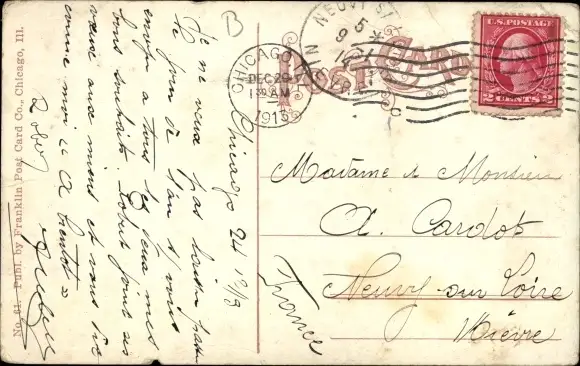 No. 61. Publ. by Franklin Post Card Co., Chicago, Ill.
B
Chicago 24 12/13
Je ne veux pas laisser passer
le jour de l'an s'
envoyer a tous les deux mes
bons souhaits. Robert joint ses
vœux aux miens et vous dit
comme moi « A bientôt »
Robert
CHICAGO
DEC 29
1 30 AM
1913
NEUVY S/
5 *
9
Post Card
U.S. POSTAGE
2 CENTS 2
Madame & Monsieur
A. Cardots
Neuvy sur Loire
Nièvre
France